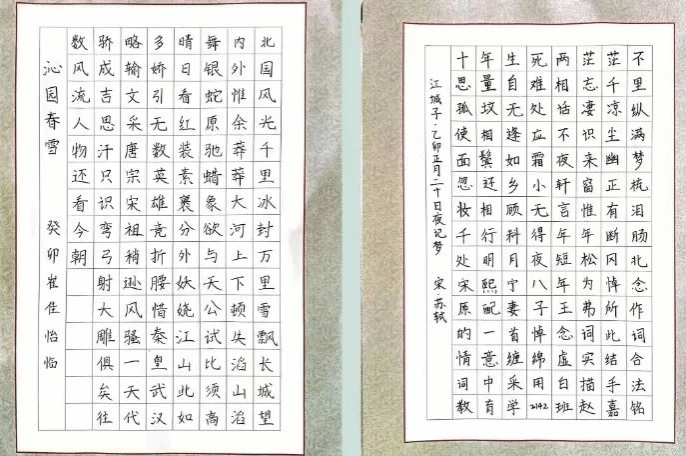 北国风光千里冰封万里雪飘长城望
内外惟余莽莽大河上下顿失滔山滔
舞银蛇原驰蜡象欲与天公试比须高
晴日看红装素裹分外妖娆江山此如
多娇引无数英雄竞折腰惜秦皇武汉
略输文采唐宗宋祖稍逊风骚一天代
骄成吉思汗只识弯弓射大雕俱矣往
数风流人物还看今朝
沁园春雪 癸卯崔佳怡临
十年生死两茫茫不
思量自难相忘千里
孤坟无处话凄凉纵
使相逢应不识尘满
面鬓如霜夜来幽梦
忽还乡小轩窗正梳
妆相顾无言惟有泪
千行料得年年断肠
处明月夜短松冈北
宋熙宁八年为悼念
原配妻子王弗所作
的一首悼念词此词
情意缠绵虚实结合
词中采用白描手法
教育学2142班赵嘉铭
江城子·乙卯正月二十日夜记梦 宋 苏轼